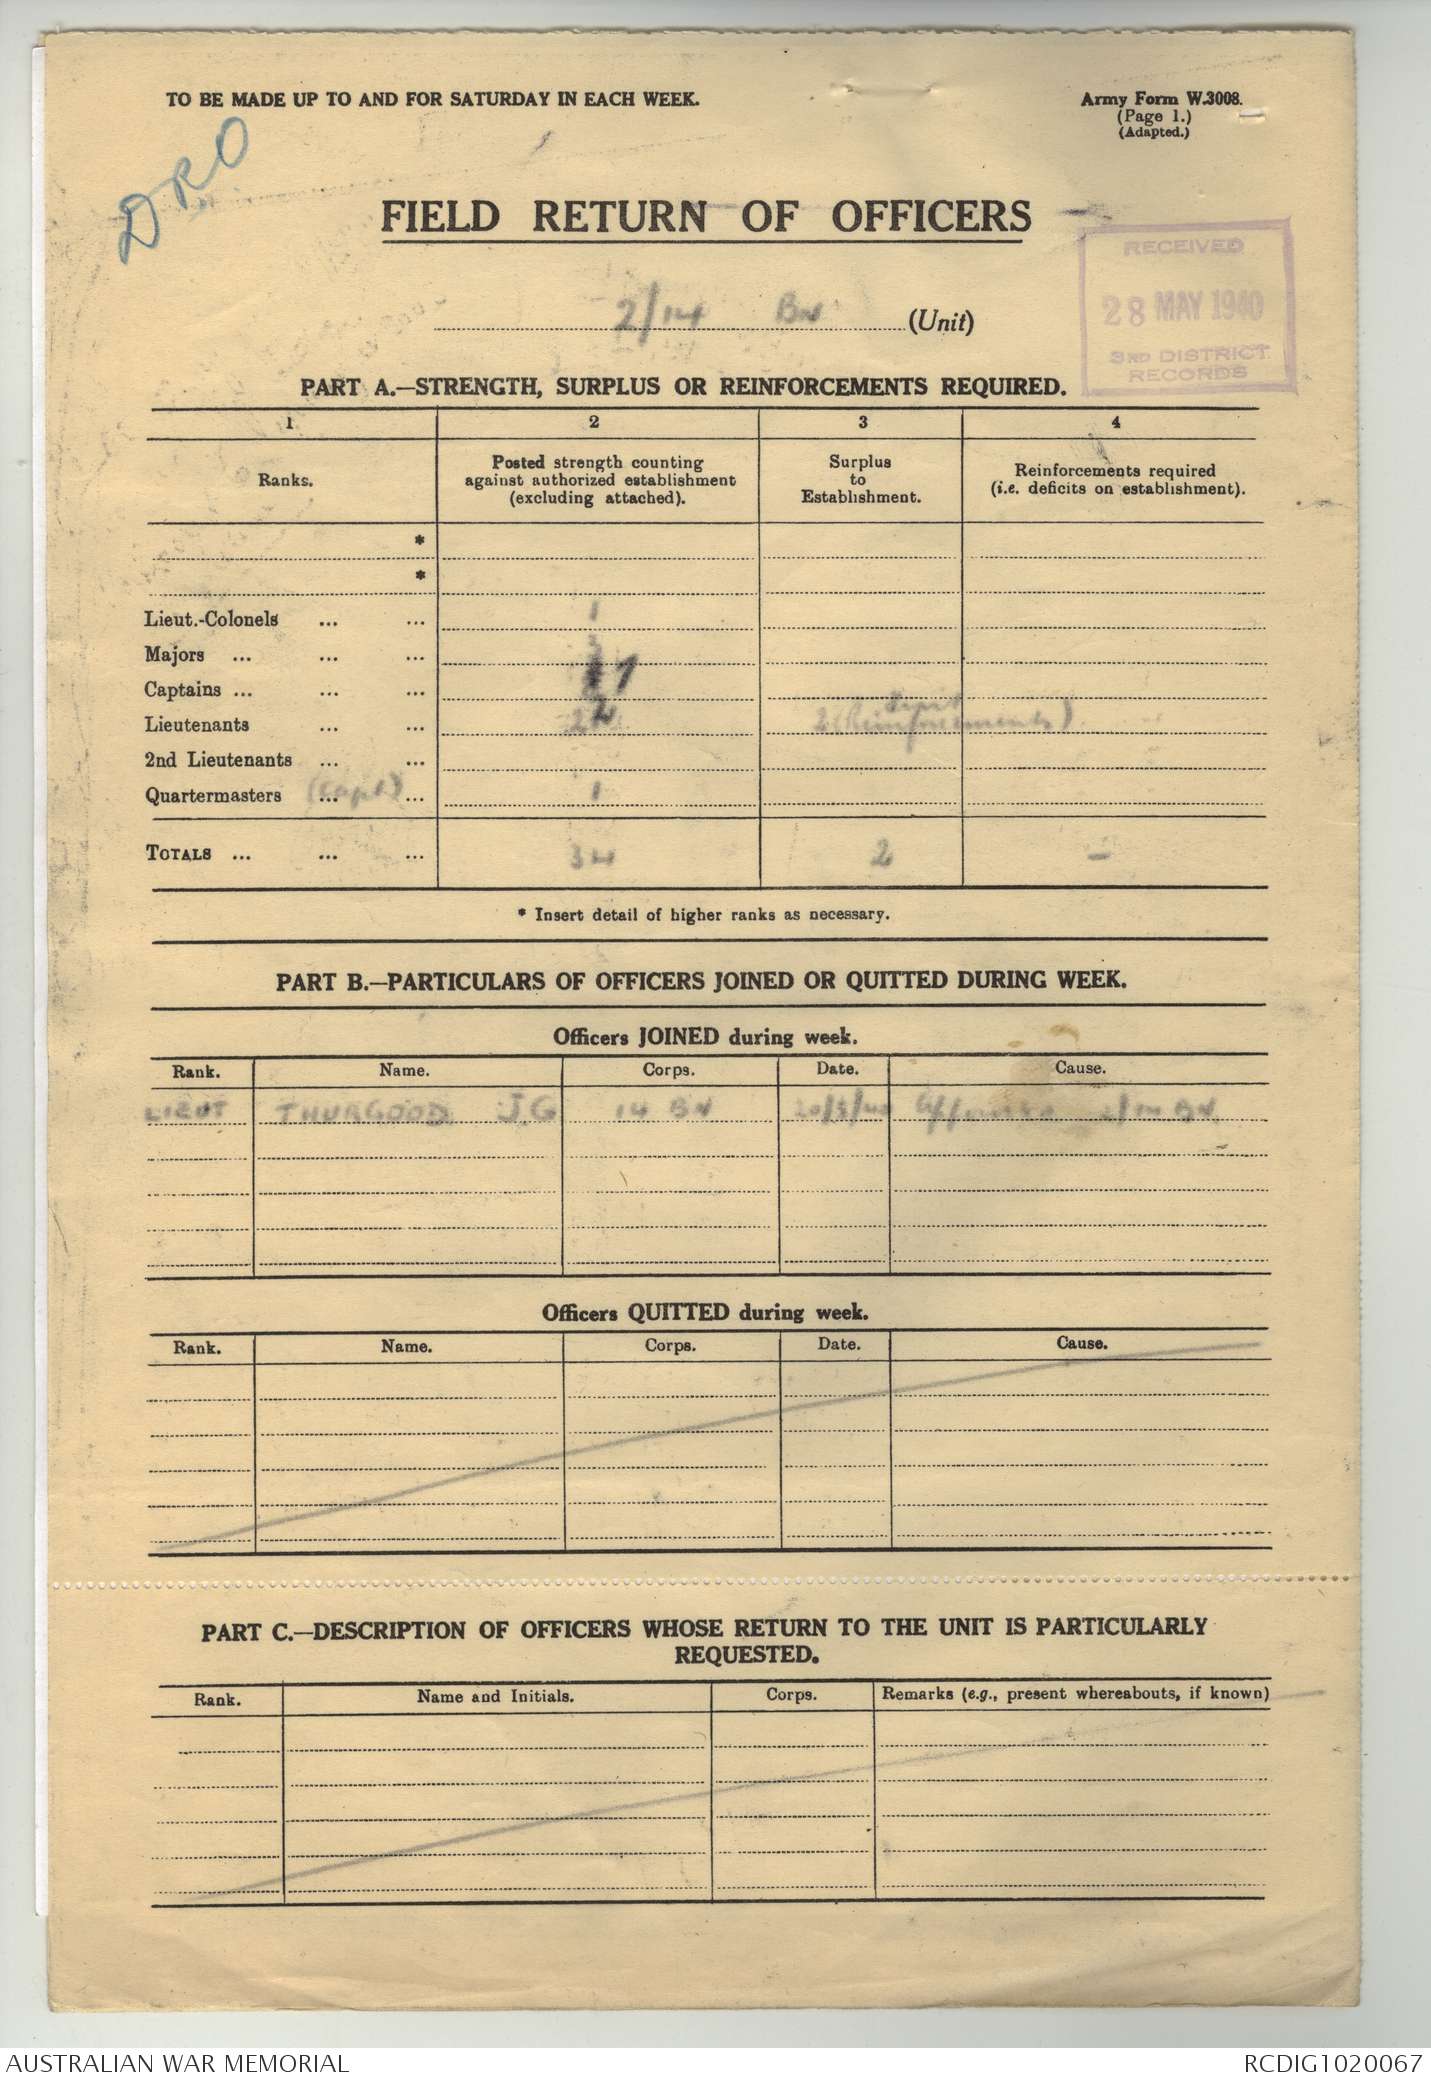 TO BE MADE UP TO AND FOR SATURDAY IN EACH WEEK.
Army Form W.3008.
(Page 1.)
(Adapted.)
DRO
FIELD RETURN OF OFFICERS
RECEIVED
28 MAY 1940
3RD DISTRICT
RECORDS
2/14 BN (Unit)
PART A.—STRENGTH, SURPLUS OR REINFORCEMENTS REQUIRED.
1 2 3 4
Ranks.
Posted strength counting
against authorized establishment
(excluding attached).
Surplus
to
Establishment.
Reinforcements required
(i.e. deficits on establishment).
*
*
Lieut.-Colonels ... ... 1
Majors ... ... ... 3
Captains ... ... ... 7
Lieutenants ... ... 22 2 (Reinforcements)
2nd Lieutenants ... ...
Quartermasters (Capt) ... ... 1
TOTALS ... ... ... 34 2 —
* Insert detail of higher ranks as necessary.
PART B.—PARTICULARS OF OFFICERS JOINED OR QUITTED DURING WEEK.
Officers JOINED during week.
Rank. Name. Corps. Date. Cause.
LIEUT THURGOOD J.G 14 BN 20/5/40 2/14 BN
Officers QUITTED during week.
Rank. Name. Corps. Date. Cause.
PART C.—DESCRIPTION OF OFFICERS WHOSE RETURN TO THE UNIT IS PARTICULARLY
REQUESTED.
Rank. Name and Initials. Corps. Remarks (e.g., present whereabouts, if known)
AUSTRALIAN WAR MEMORIAL
RCDIG1020067